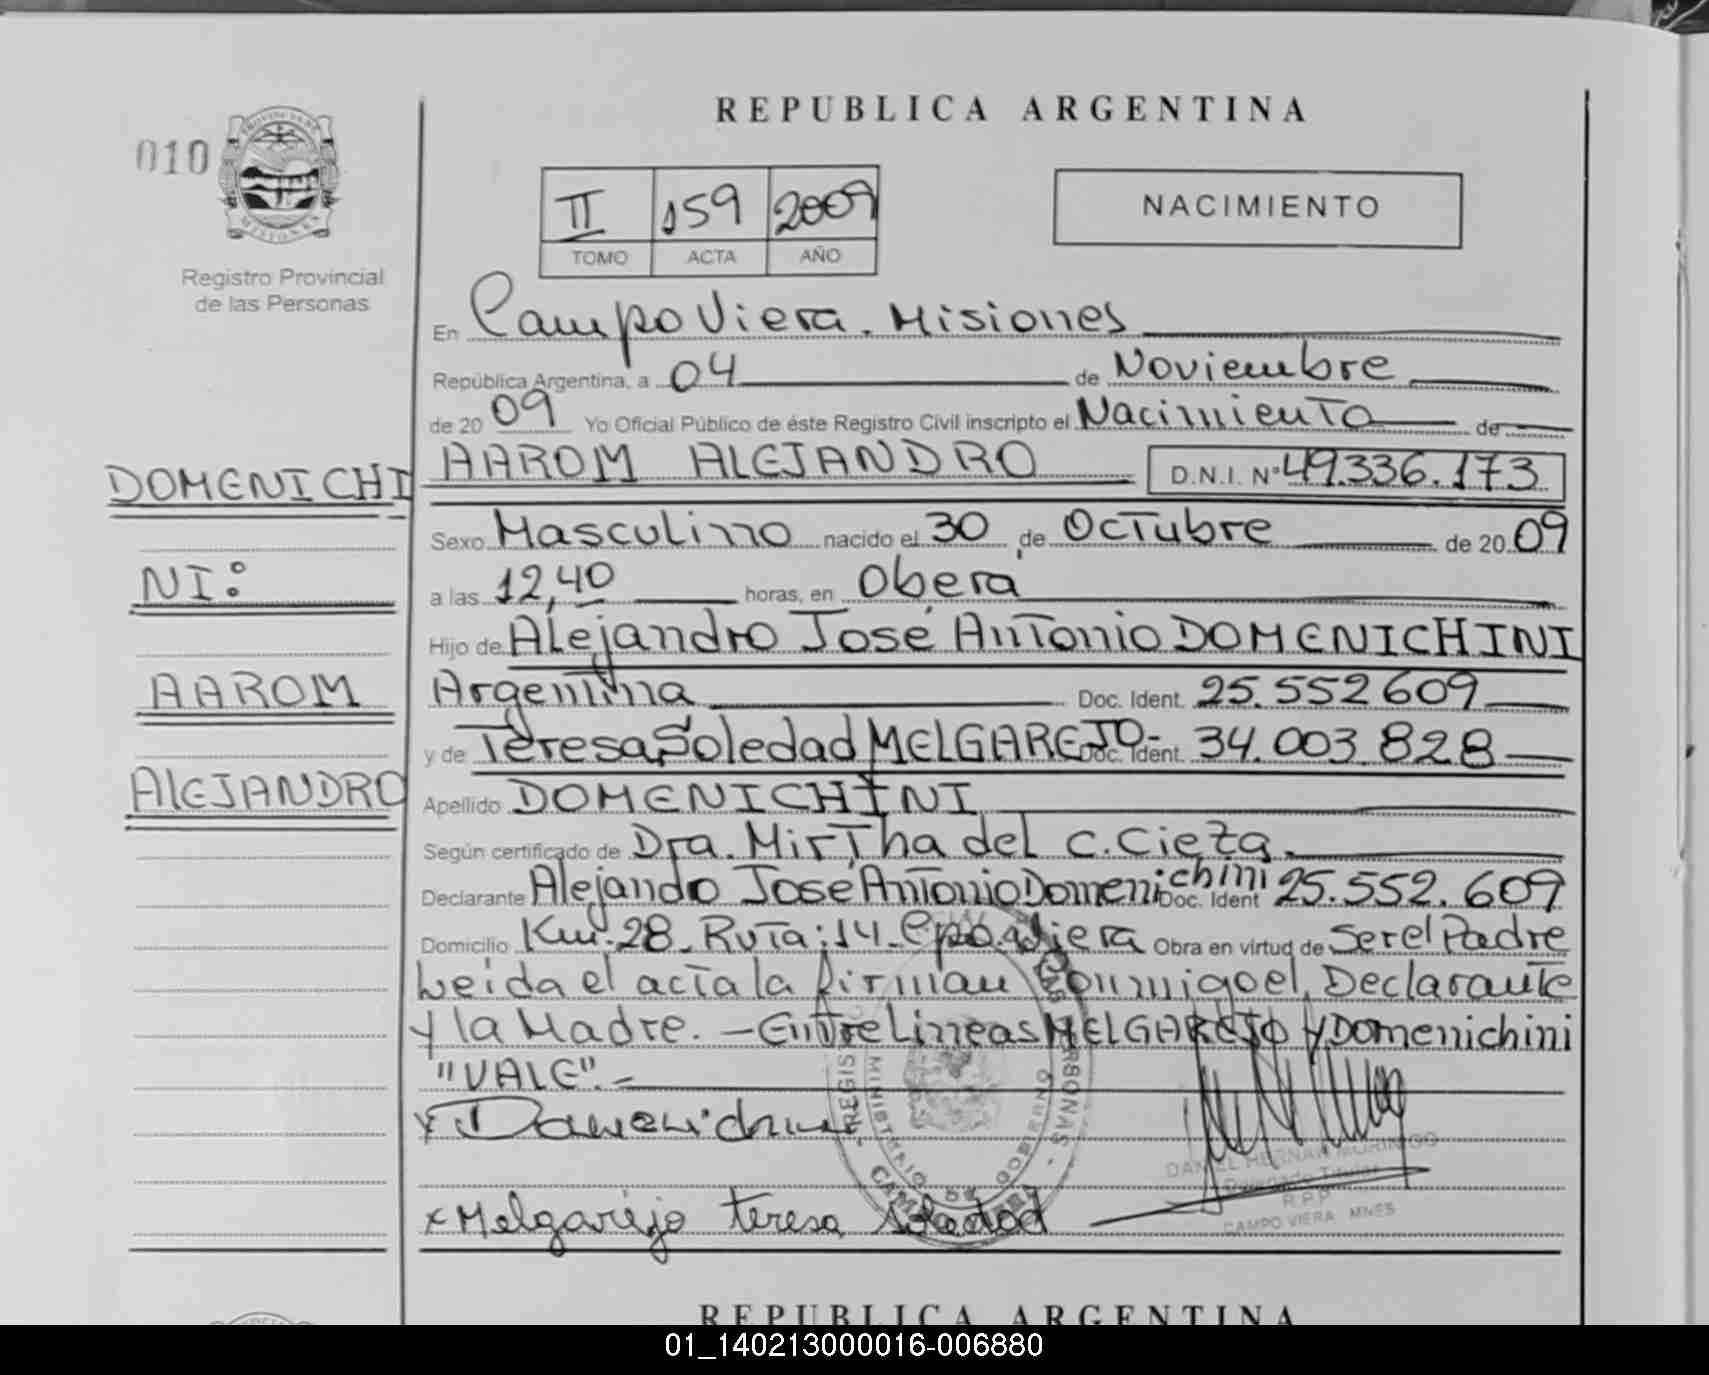 REPUBLICA ARGENTINA
010
PROVINCIA DE MISIONES
Registro Provincial
de las Personas
II 159 2009
TOMO ACTA AÑO
NACIMIENTO
En Campo Viera. Misiones
República Argentina, a 04 de Noviembre
de 20 09 Yo Oficial Público de éste Registro Civil inscripto el Nacimiento de
DOMENICHI
NI:
AAROM
AlEJANDRO
AAROM ALEJANDRO D.N.I. Nº 49.336.173
Sexo Masculino nacido el 30 de Octubre de 20 09
a las 12,40 horas, en Oberá
Hijo de Alejandro José Antonio DOMENICHINI
Argentina Doc. Ident. 25.552609
y de Teresa Soledad MELGAREJO- Doc. Ident. 34.003.828
Apellido DOMENICHINI
Según certificado de Dra. Mirtha del C. Cieza.
Declarante Alejandro José Antonio Domenichini Doc. Ident 25.552.609
Domicilio Km. 28_Ruta:14_Cpo. Viera Obra en virtud de Ser el Padre
Leida el acta la firman conmigo el Declarante
y la Madre. -Entre Lineas MELGAREJO y Domenichini
"VALE".-
x Domenichini
x Melgarejo teresa soledad
REGIS PERSONAS - MINISTERIO DE GOBIERNO CAMPO VIERA
DANIEL HERNAN MORINIGO
Delegado Titular
R.P.P.
CAMPO VIERA MNES
REPUBLICA ARGENTINA
01_140213000016-006880